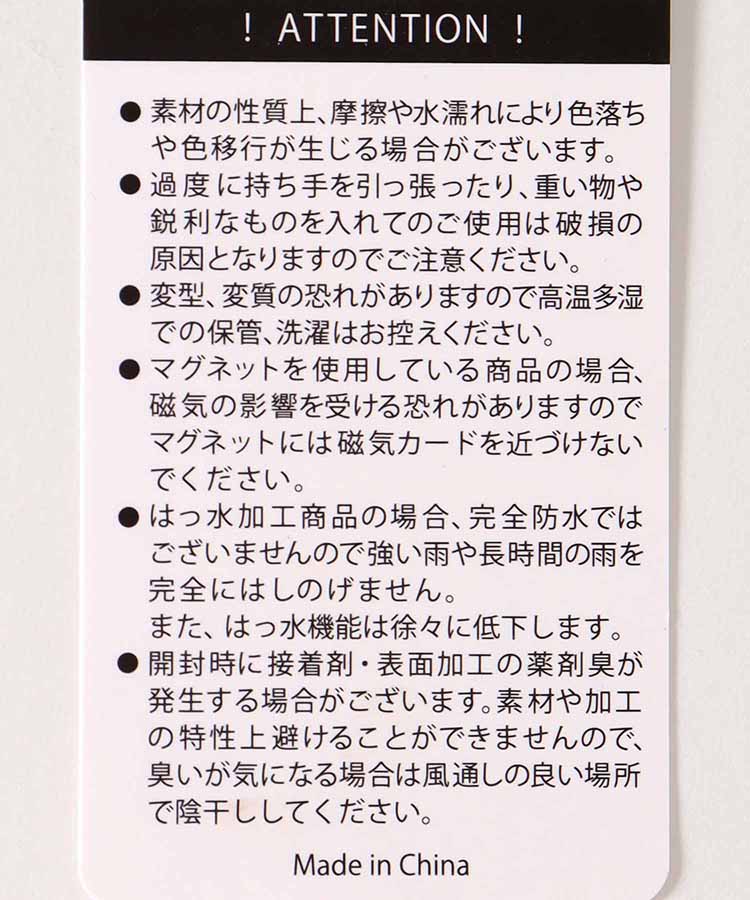 ! ATTENTION !
● 素材の性質上、摩擦や水濡れにより色落ち
や色移行が生じる場合がございます。
● 過度に持ち手を引っ張ったり、重い物や
鋭利なものを入れてのご使用は破損の
原因となりますのでご注意ください。
● 変型、変質の恐れがありますので高温多湿
での保管、洗濯はお控えください。
● マグネットを使用している商品の場合、
磁気の影響を受ける恐れがありますので
マグネットには磁気カードを近づけない
でください。
● はっ水加工商品の場合、完全防水では
ございませんので強い雨や長時間の雨を
完全にはしのげません。
また、はっ水機能は徐々に低下します。
● 開封時に接着剤・表面加工の薬剤臭が
発生する場合がございます。素材や加工
の特性上避けることができませんので、
臭いが気になる場合は風通しの良い場所
で陰干ししてください。
Made in China